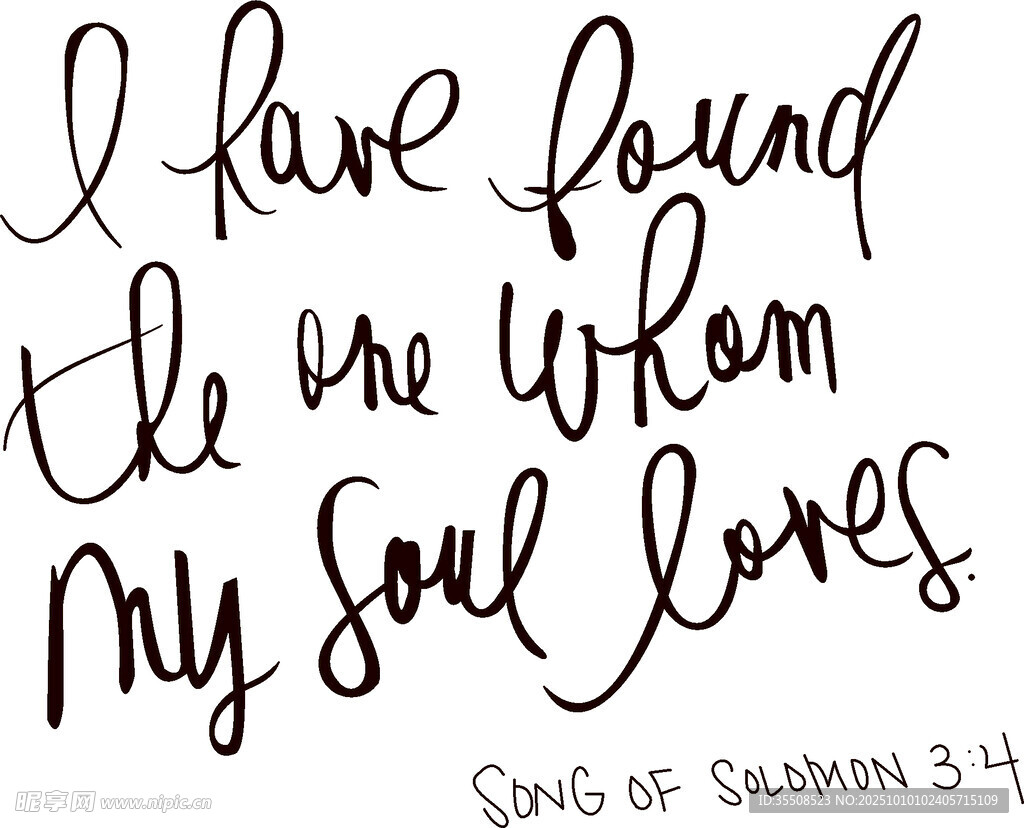 I have found
the one whom
my soul loves.
SONG OF SOLOMON 3:4
昵享网 www.nipic.cn
ID:35508523 NO:20251010102405715109